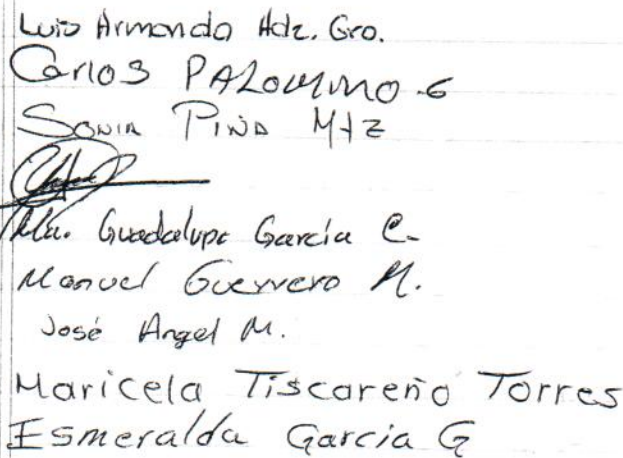 Luis Armando Hdz. Gro.
Carlos PALOMINO G
SONIA PIÑA Mtz
Ma. Guadalupe García C.
Manuel Guerrero M.
José Angel M.
Maricela Tiscareño Torres
Esmeralda García G